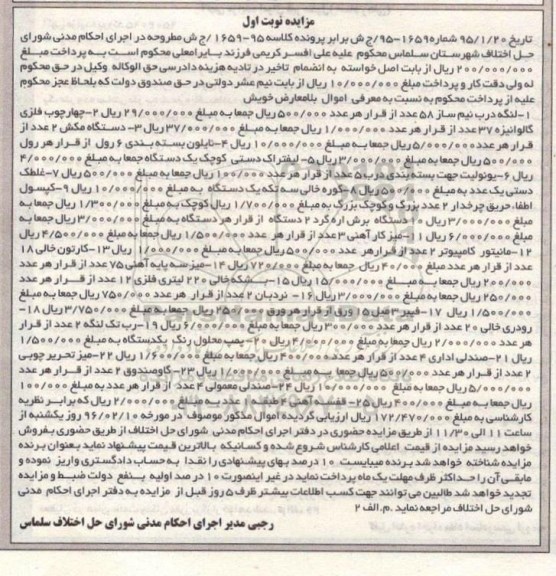 مزایده نوبت اول
تاریخ ۹۵/۱/۲۰ شماره۱۶۵۹-۹۵/ج ش برابر پرونده کلاسه ۹۵-۱۶۵۹ /ج ش مطروحه در اجرای احکام مدنی شورای
حل اختلاف شهرستان سلماس محکوم علیه علی افسر کریمی فرزند بایرامعلی محکوم است به پرداخت مبلغ
۲۰۰/۰۰۰/۰۰۰ ریال از بابت اصل خواسته به انضمام تاخیر در تادیه هزینه دادرسی حق الوکاله وکیل در حق محکوم
له ولی دقت کار و پرداخت مبلغ ۱۰/۰۰۰/۰۰۰ ریال از بابت نیم عشر دولتی در حق صندوق دولت که بلحاظ عجز محکوم
علیه از پرداخت محکوم به نسبت به معرفی اموال بلامعارض خویش
۱-لنگه درب نیم ساز ۵۸ عدد از قرار هر عدد ۵۰۰/۰۰۰ ریال جمعا به مبلغ ۲۹/۰۰۰/۰۰۰ ریال ۲-چهارچوب فلزی
گالوانیزه ۳۷ عدد از قرار هر عدد ۱/۰۰۰/۰۰۰ ریال جمعا به مبلغ ۳۷/۰۰۰/۰۰۰ ریال ۳- دستگاه مکش ۲ عدد از
قرار هر عدد ۵/۰۰۰/۰۰۰ ریال جمعا به مبلغ ۱۰/۰۰۰/۰۰۰ ریال ۴-نایلون بسته بندی ۶ رول از قرار هر رول
۵۰۰/۰۰۰ ریال جمعا به مبلغ ۳/۰۰۰/۰۰۰ ریال ۵- لیفتراک دستی کوچک یک دستگاه جمعا به مبلغ ۴/۰۰۰/۰۰۰
ریال ۶-یونولیت جهت بسته بندی درب ۵ عدد از قرار هر عدد ۱۰۰/۰۰۰ ریال جمعا به مبلغ ۵۰۰/۰۰۰ ریال ۷-غلطک
دستی یک عدد به مبلغ ۵۰۰/۰۰۰ ریال ۸-کوره خالی سه تکه یک دستگاه به مبلغ ۱۰/۰۰۰/۰۰۰ ریال ۹-کپسول
اطفاء حریق چرخدار ۲ عدد بزرگ و کوچک بزرگ به مبلغ ۱/۷۰۰/۰۰۰ ریال کوچک به مبلغ ۱/۳۰۰/۰۰۰ ریال جمعا به
مبلغ ۳/۰۰۰/۰۰۰ ریال ۱۰-دستگاه برش اره گرد ۲ دستگاه از قرار هر دستگاه به مبلغ ۳/۰۰۰/۰۰۰ ریال جمعا به
مبلغ ۶/۰۰۰/۰۰۰ ریال ۱۱-میز کار آهنی ۳ عدد از قرار هر عدد ۱/۵۰۰/۰۰۰ ریال جمعا به مبلغ ۴/۵۰۰/۰۰۰ ریال
۱۲-مانیتور کامپیوتر ۲ عدد از قرار هر عدد ۵۰۰/۰۰۰ ریال جمعا به مبلغ ۱/۰۰۰/۰۰۰ ریال ۱۳-کارتون خالی ۱۸
عدد از قرار هر عدد مبلغ ۴۰/۰۰۰ ریال جمعا به مبلغ ۷۲۰/۰۰۰ ریال ۱۴-میز سه پایه آهنی ۷۵ عدد از قرار هر عدد
۲۰۰/۰۰۰ ریال جمعا به مبلغ ۱۵/۰۰۰/۰۰۰ ریال ۱۵-بشکه خالی ۲۲۰ لیتری فلزی ۱۲ عدد از قرار هر عدد
۲۵۰/۰۰۰ ریال جمعا به مبلغ ۳/۰۰۰/۰۰۰ ریال ۱۶- نردبان ۲ عدد از قرار هر عدد ۷۵۰/۰۰۰ ریال جمعا به مبلغ
۱/۵۰۰/۰۰۰ ریال ۱۷-فیبر ۳میل ۱۵ ورق از قرار هر ورق ۲۵۰/۰۰۰ ریال جمعا به مبلغ ۳/۷۵۰/۰۰۰ ریال ۱۸-
رودری خالی ۲۰ عدد از قرار هر عدد ۳۰۰/۰۰۰ ریال جمعا به مبلغ ۶/۰۰۰/۰۰۰ ریال ۱۹-رب تک لنگه ۲ عدد از قرار
هر عدد ۲/۰۰۰/۰۰۰ ریال جمعا به مبلغ ۴/۰۰۰/۰۰۰ ریال ۲۰-پمپ محلول رنگ یکدستگاه به مبلغ ۱/۵۰۰/۰۰۰
ریال ۲۱-صندلی اداری ۴ عدد از قرار هر عدد ۴۰۰/۰۰۰ ریال جمعا به مبلغ ۱/۶۰۰/۰۰۰ ریال ۲۲-میز تحریر چوبی
۲ عدد از قرار هر عدد ۵۰۰/۰۰۰ ریال جمعا به مبلغ ۱/۰۰۰/۰۰۰ ریال ۲۳-گاوصندوق ۲ عدد از قرار هر عدد
۵/۰۰۰/۰۰۰ ریال جمعا به مبلغ ۱۰/۰۰۰/۰۰۰ ریال ۲۴-صندلی معمولی ۴ عدد از قرار هر عدد به مبلغ ۱۰۰/۰۰۰
ریال جمعا به مبلغ ۴۰۰/۰۰۰ ریال ۲۵- قفسه آهنی ۴ طبقه ۲ عدد به مبلغ ۲/۰۰۰/۰۰۰ ریال که برابر نظریه
کارشناسی به مبلغ ۱۷۲/۴۷۰/۰۰۰ ریال ارزیابی گردیده اموال مذکور موصوف در مورخه ۹۶/۰۲/۱۰ روز یکشنبه از
ساعت ۱۱ الی ۱۱/۳۰ از طریق مزایده حضوری در دفتر اجرای احکام مدنی شورای حل اختلاف از طریق حضوری بفروش
خواهد رسید مزایده از قیمت اعلامی کارشناس شروع شده و کسانیکه بالاترین قیمت پیشنهاد نماید بعنوان برنده
مزایده شناخته خواهد شد برنده میبایست ۱۰ درصد بهای پیشنهادی را نقدا به حساب دادگستری واریز نموده و
مابقی آن را حداکثر ظرف مهلت یک ماه پرداخت نماید در غیر اینصورت ۱۰ درصد اولیه بنفع دولت ضبط و مزایده
تجدید خواهد شد طالبین می توانند جهت کسب اطلاعات بیشتر ظرف ۵ روز قبل از مزایده به دفتر اجرای احکام مدنی
شورای حل اختلاف مراجعه نماید .م.الف ۲
رجبی مدیر اجرای احکام مدنی شورای حل اختلاف سلماس